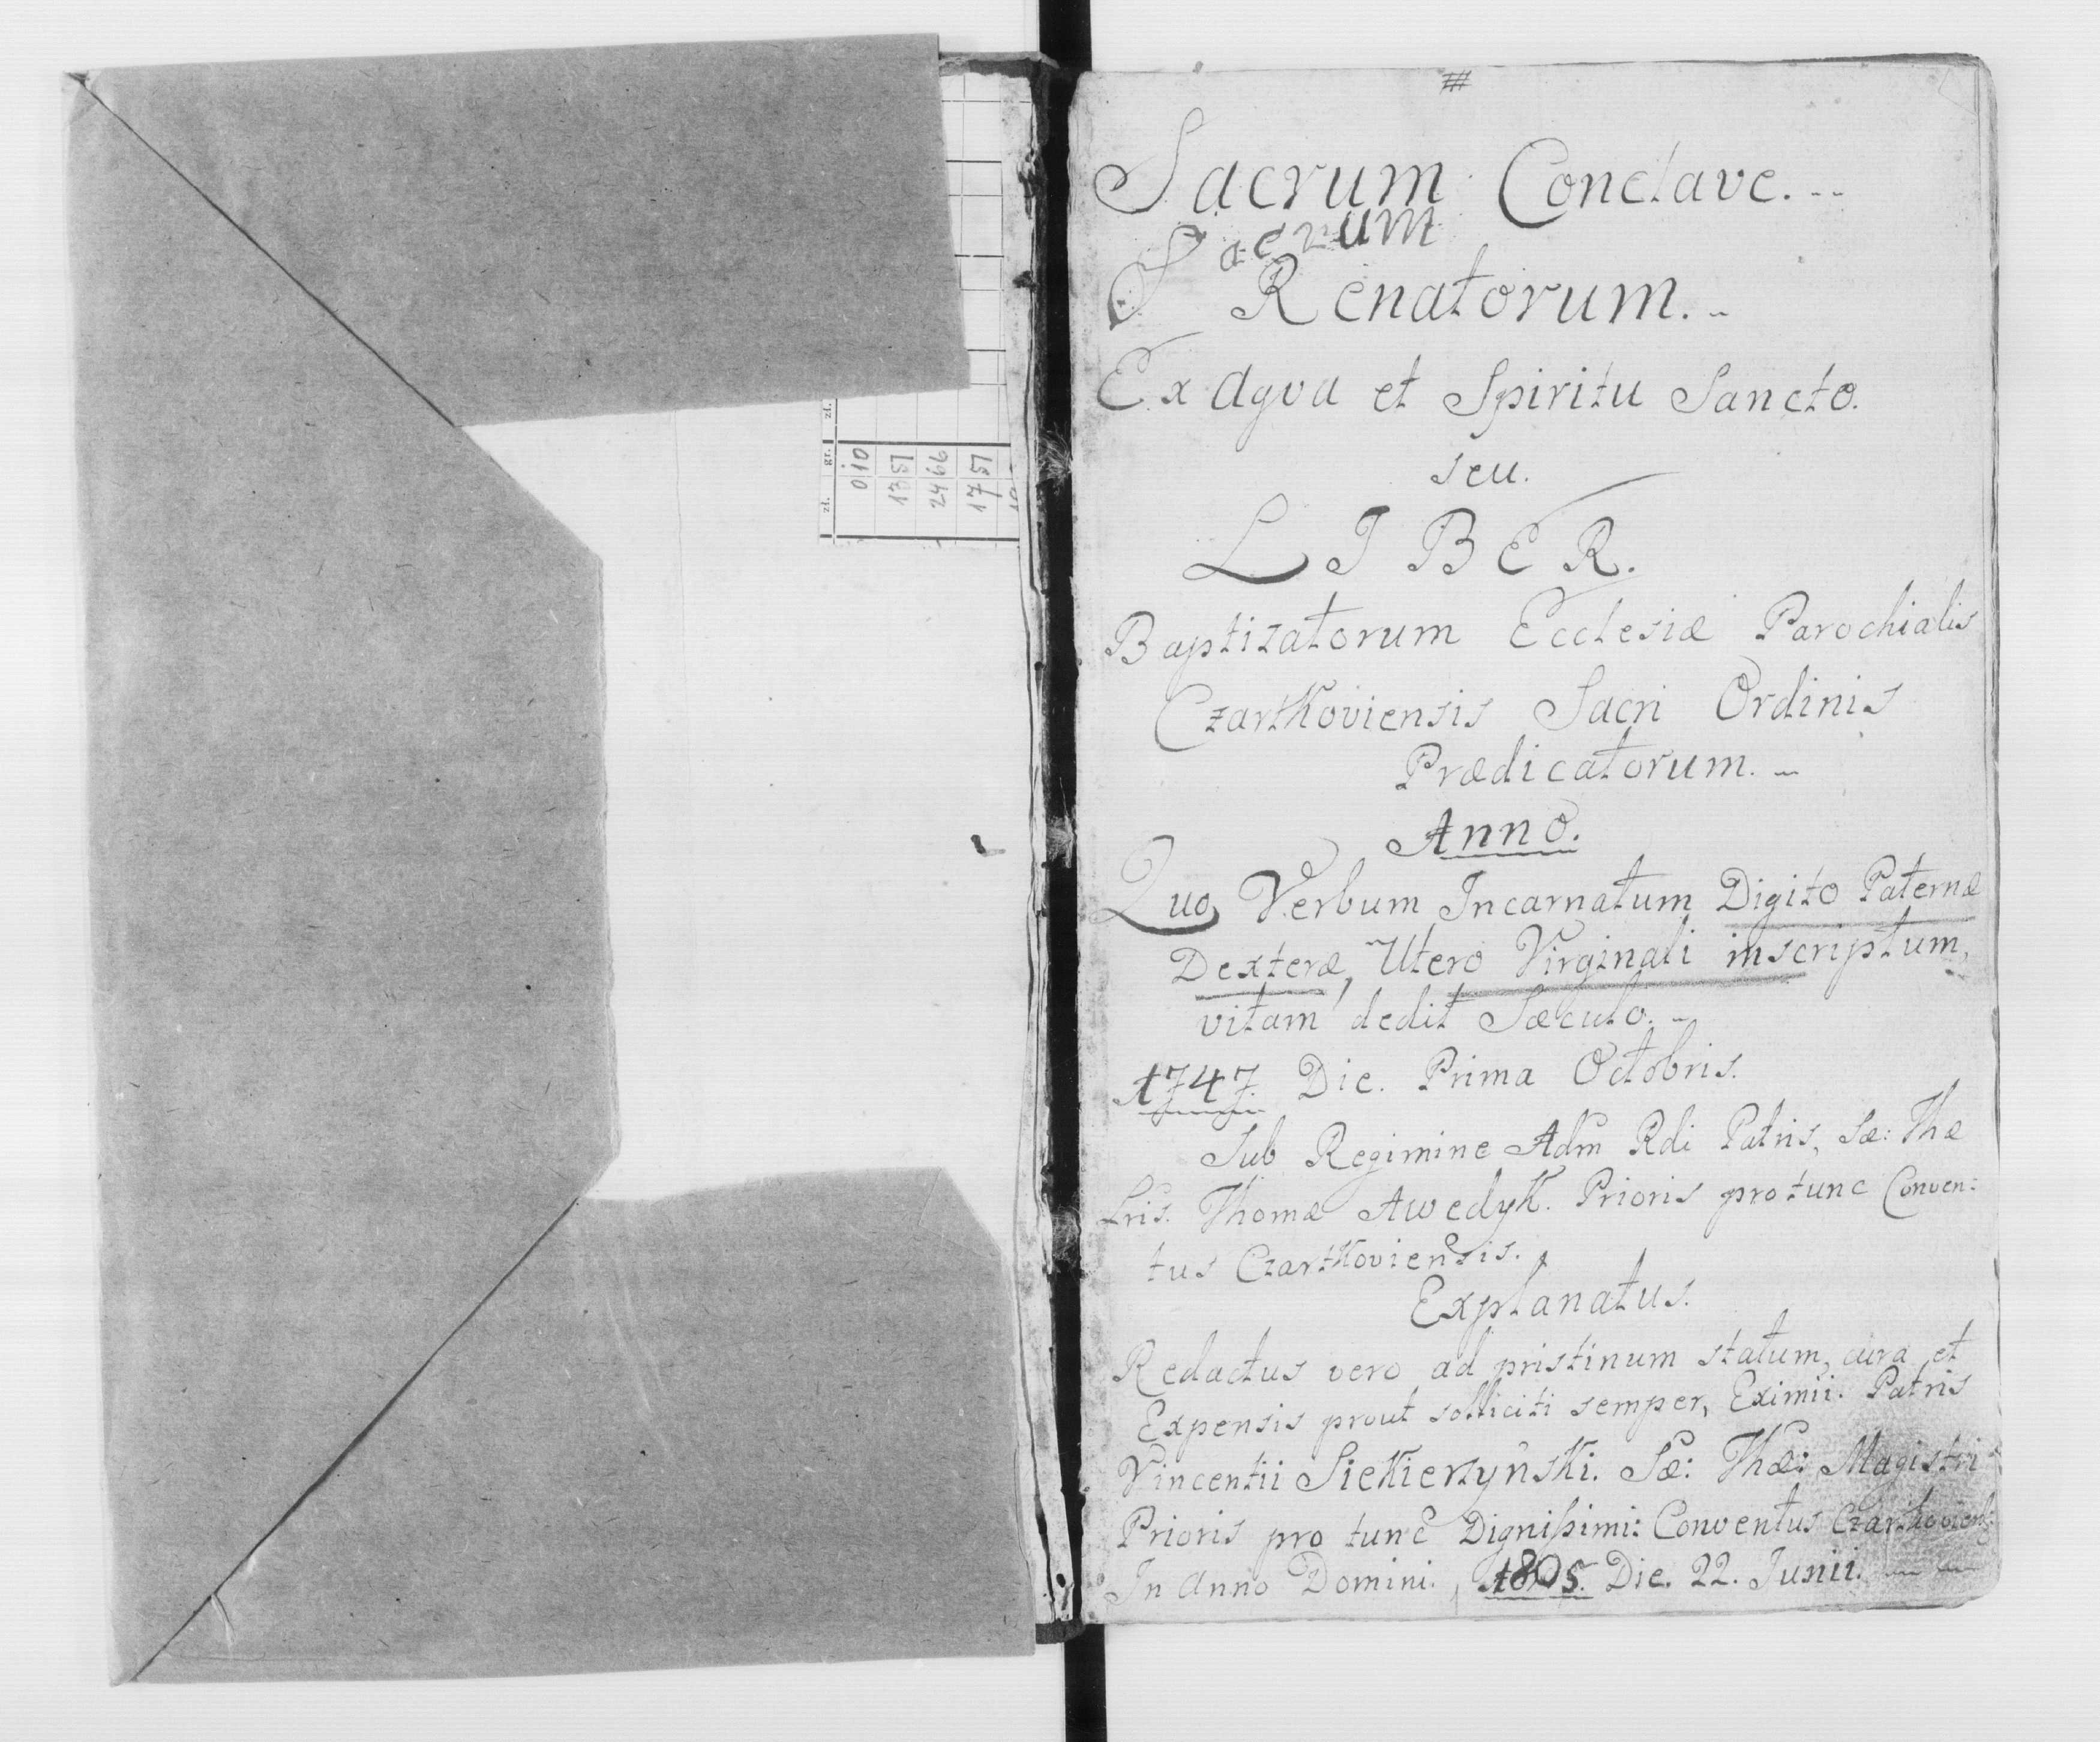 zł. gr. zł.
0 10
17 51
24 66
17 51
Sacrum Conclave. --
Sacrum
Renatorum. -
Ex Aqva et Spiritu Sancto.
seu.
LIBER.
Baptizatorum Ecclesiæ Parochialis
Czartkoviensis Sacri Ordinis
Prædicatorum. -
Anno.
Quo Verbum Incarnatum Digito Paternæ
Dexteræ, Utero Virginali inscriptum,
vitam dedit Sæculo. -
1747. Die. Prima Octobris.
Sub Regimine Adm Rdi Patris, Sæ: Thæ
Lris. Thomæ Awedyk. Prioris pro tunc Conven:
tus Czartkoviensis.
Explanatus.
Redactus vero ad pristinum statum, cura et
Expensis prout solliciti semper, Eximii. Patris
Vincentii Siekierzyński. Sæ: Thæ: Magistri
Prioris pro tunc Dignißimi: Conventus Czartkoviens:
In Anno Domini. 1805. Die. 22. Junii. --